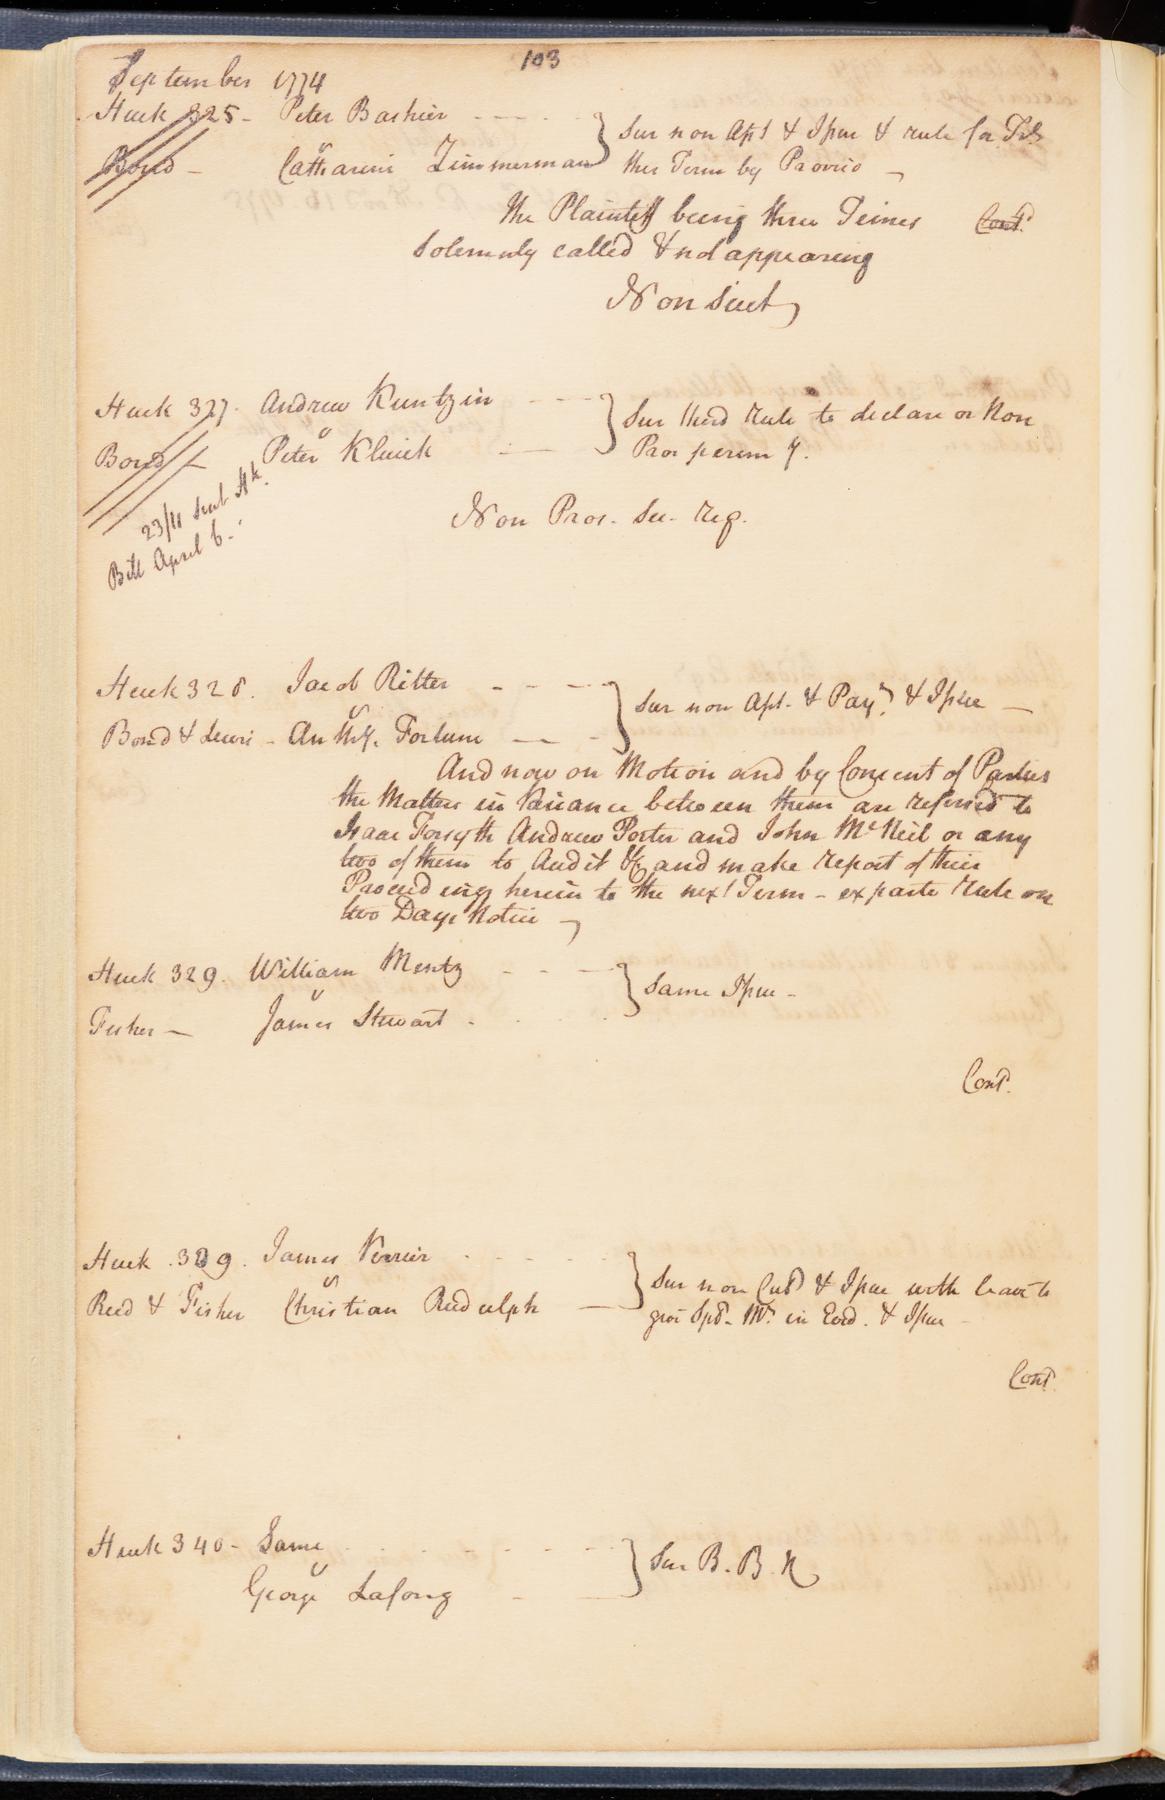 103
September 1774
Huck 325 - Peter Bashier
Bond - v Catharine Zimmerman } Sur non Apt & Issue & rule for Trl
this Term by Proviso
The Plaintiff being three Times Cont.
Solemnly called & not appearing
Non Suit
Huck 327. Andrew Kuntzin
Bond - v Peter Kluick } Sur third rule to declare or Non
Pros perem y.
23/11 Sent Ak.
Bill April 6.
Non Pros. Sec. Reg.
Huck 328. Jacob Ritter
Bond & Lewis - v Anthy. Fortune } Sur non Apt. & Paymt. & Issue
And now on Motion and by Consent of Parties
the Matters in Variance between them are referred to
Isaac Forsyth Andrew Porter and John McNeil or any
two of them to Audit &c and make report of their
Proceedings herein to the next Term - ex parte rule on
two Days Notice
Huck 329. William Mentz
Fisher - v James Stewart } Same Issue -
Cont.
Huck .339. James Verrier
Reed & Fisher v Christian Rudulph } Sur non Cul & Issue with leave to
give Spl. Mr. in Evid. & Issue
Cont.
Huck 340 - Same
v George Lafong } Sur B. B. R